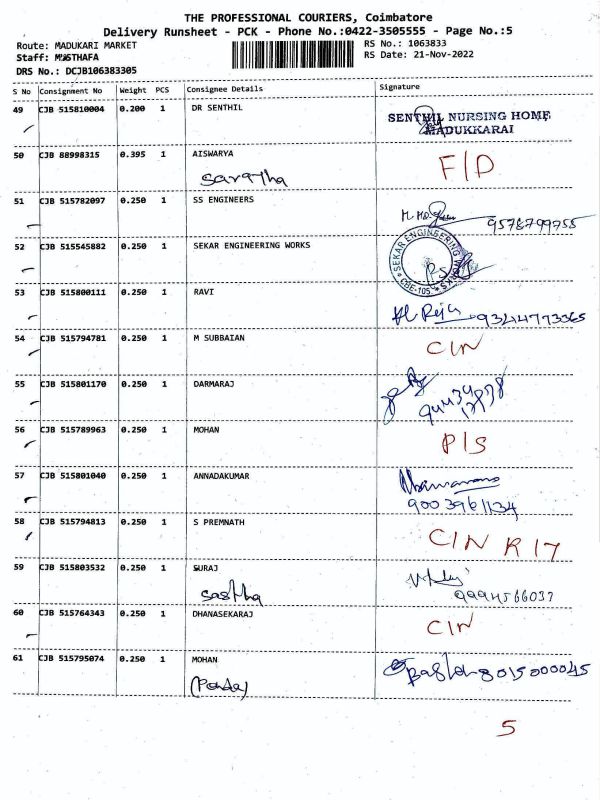 THE PROFESSIONAL COURIERS, Coimbatore
Delivery Runsheet - PCK - Phone No.:0422-3505555 - Page No.:5
Route: MADUKARI MARKET
RS No.: 1063833
Staff: MUSTHAFA
RS Date: 21-Nov-2022
DRS No.: DCJB106383305
S No Consignment No Weight PCS Consignee Details Signature
49 CJB 515810004 0.200 1 DR SENTHIL
SENTHIL NURSING HOME
MADUKKARAI
50 CJB 88998315 0.395 1 AISWARYA F/D
Saratha
51 CJB 515782097 0.250 1 SS ENGINEERS
9578799755
52 CJB 515545882 0.250 1 SEKAR ENGINEERING WORKS
SEKAR ENGINEERING
CBE-105
53 CJB 515800111 0.250 1 RAVI
9344773365
54 CJB 515794781 0.250 1 M SUBBAIAN CIN
55 CJB 515801170 0.250 1 DARMARAJ
56 CJB 515789963 0.250 1 MOHAN P/S
57 CJB 515801040 0.250 1 ANNADAKUMAR
9003961134
58 CJB 515794813 0.250 1 S PREMNATH CIN R 17
59 CJB 515803532 0.250 1 SURAJ
Sastha 9994566037
60 CJB 515764343 0.250 1 DHANASEKARAJ CIN
61 CJB 515795074 0.250 1 MOHAN
8015000045
5